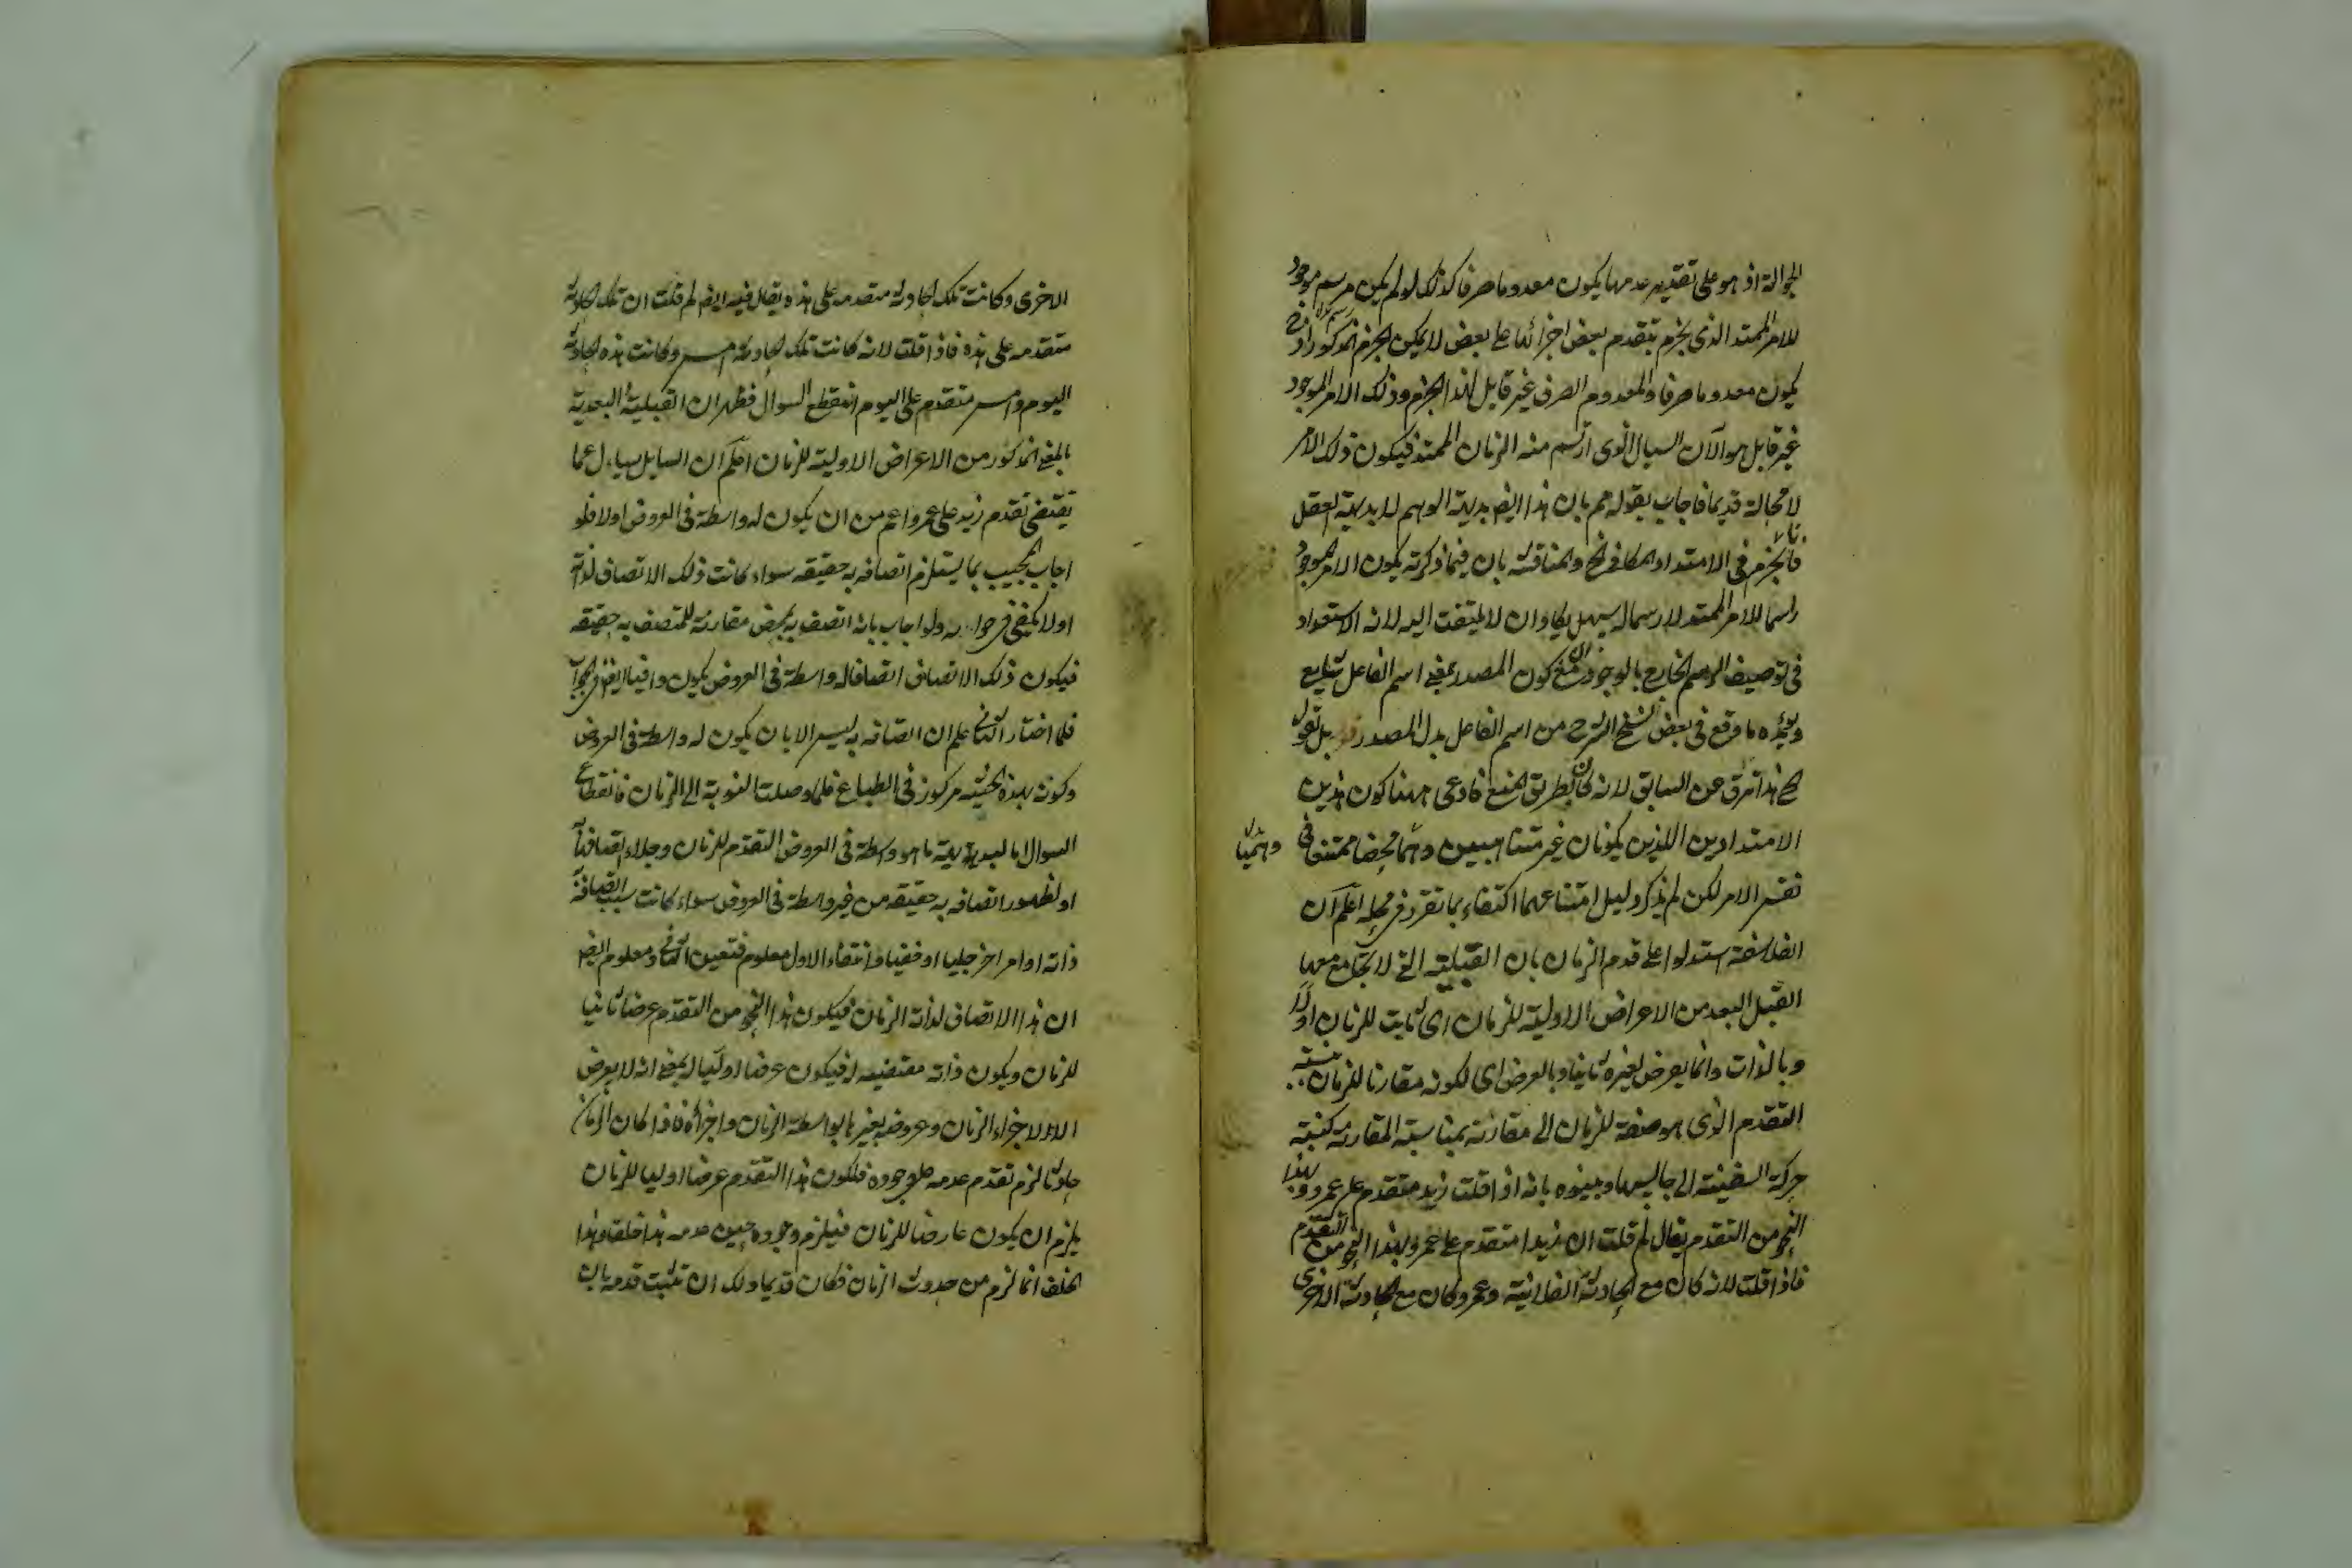 الجوالة اذ هو على تقدير عدمها يكون معدوما صرفا كذلك لو لم يكن مرسم موجود
للامر الممتد الذى يجزم بتقدم بعض اجزائها على بعض لا يمكن الجزم المذكور اذ ح
يكون معدوما صرفا والمعدوم الصرف غير قابل لهذا الجزم وذلك الامر الموجود
غير قابل هو الآن السيال الذى ارتسم منه الزمان الممتد فيكون ذلك الامر
لا محالة قديما فاجاب بقوله هم بان هذا ايض بديهة الوهم لا بديهة العقل
فالجزم فى الامتداد المكانى والمناقشة بان فيما ذكرته يكون الامر الموجود
راسما للامر الممتد لا رسما له سهل يكاد ان لا يلتفت اليه لانه الاستعداد
فى توصيف الوهم الخارج بالوجود مع ان كون المصدر بمعنى اسم الفاعل شايع
ويؤيده ما وقع فى بعض نسخ الشرح من اسم الفاعل بدل المصدر قوله بل نقول
هذا ترق عن السابق لانه كان بطريق المنع فادعى ههنا كون هذين
الامتدادين اللذين يكونان غير متناهيين وهما محضا ممتنعا فى
وهميا
نفس الامر لكن لم يذكر دليل امتناعهما اكتفاء بما تقرر فى محله اعلم ان
الفلاسفة استدلوا على قدم الزمان بان القبلية التى لا تجامع معها
القبل البعد من الاعراض الاولية للزمان اى ثابت للزمان اولا
وبالذات وانما يعرض لغيره ثانيا وبالعرض اى لكونه مقارنا للزمان فنسبة
التقدم الذى هو صفة للزمان الى مقارنه بمناسبة المقارنة كنسبة
حركة السفينة الى جاليسها وبينوه بانه اذا قلت زيد متقدم على عمرو بهذا
النحو من التقدم يقال لم قلت ان زيدا متقدم على عمرو بهذا النحو من التقدم
فاذا قلت لانه كان مع الحادثة الفلانية وعمرو كان مع الحادثة الاخرى
الاخرى وكانت تلك الحادثة متقدمه على هذه يقال فيه ايض لم قلت ان تلك الحادثة
متقدمه على هذه فاذا قلت لانه كانت تلك الحادثة امس وكانت هذه الحادثة
اليوم وامس متقدم على اليوم انقطع السوال فظهر ان القبلية البعدية
بالمعنى المذكور من الاعراض الاولية للزمان اعلم ان السايل سال عما
يقتضى تقدم زيد على عمرو اعم من ان يكون له واسطة فى العروض اولا فلو
اجاب المجيب بما يستلزم اتصافه به حقيقه سواء كانت ذلك الاتصاف لذاته
اولا يكفى فى جوابه ولو اجاب بانه اتصف به بمحض مقارنة للمتصف به حقيقه
فيكون ذلك الاتصاف اتصافا له واسطة فى العروض يكون وافيا ايض فى الجواب
فلما اختار الثانى علم ان اتصافه به ليس الا بان يكون له واسطة فى العروض
وكونه بهذه الحيثية مركوز فى الطباع فلما وصلت النوبة الى الزمان فانقطاع
السوال اما لبديهية ما هو واسطة فى العروض التقدم للزمان وجلاء اتصافه
او لظهور اتصافه به حقيقه من غير واسطة فى العروض سواء كانت سبب اتصافه
ذاته او امر اخر جليا او خفيا وانتفاء الاول معلوم فتعين الثانى ومعلوم ايض
ان هذا الاتصاف لذات الزمان فيكون هذا النحو من التقدم عرضا ثانيا
للزمان ويكون ذاته مقتضيه له فيكون عرضا اوليا له بمعنى انه لا يعرض
الا لاجزاء الزمان وعروضه لغيرها بواسطة الزمان واجزائه فاذا كان الزمان
حادثا لزم تقدم عدمه على وجوده فلكون هذا التقدم عرضا اوليا للزمان
يلزم ان يكون عارضا للزمان فيلزم وجوده حين عدمه هذا خلف وهذا
الخلف انما لزم من حدوث الزمان فكان قديما ولك ان تثبت قدمه بان